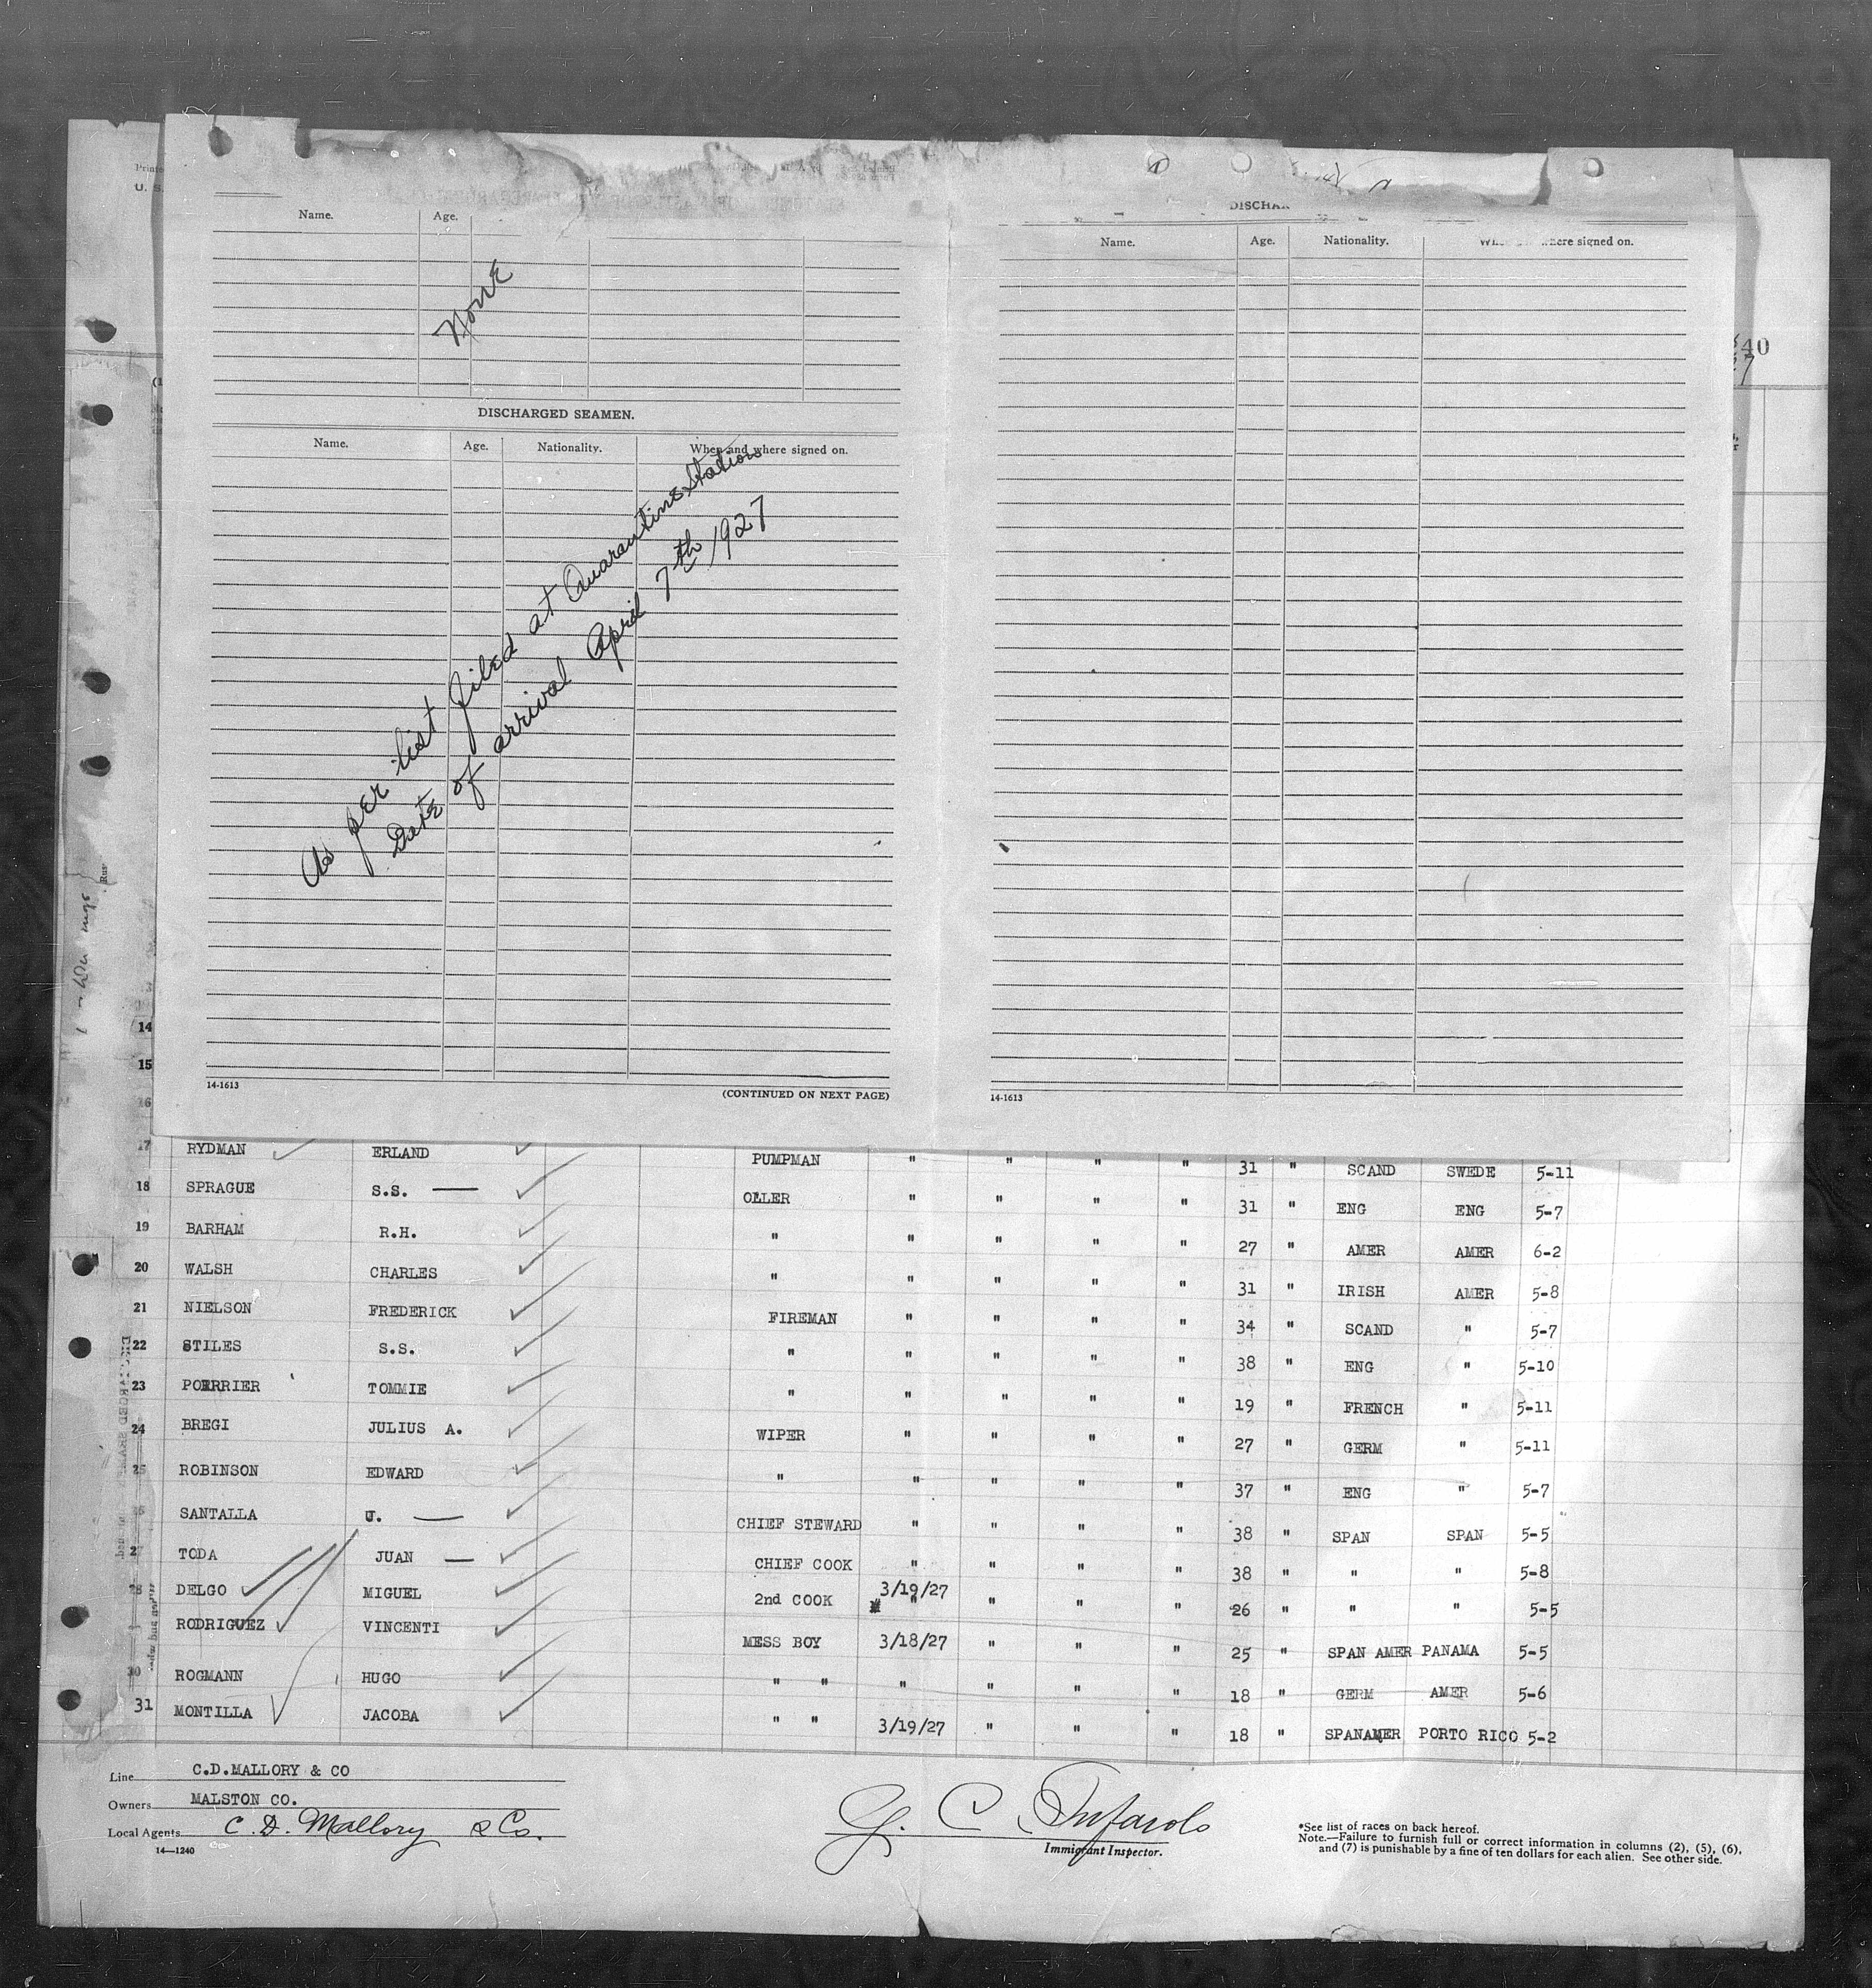 Name. Age.
None
DISCHARGED SEAMEN.
Name. Age. Nationality. When and where signed on.
As per list filed at Quarantine Station
Date of arrival April 7th 1927
14-1613 (CONTINUED ON NEXT PAGE)
Name. Age. Nationality. where signed on.
14-1613
40
14
15
16
17 RYDMAN ERLAND PUMPMAN " " " " 31 " SCAND SWEDE 5-11
18 SPRAGUE S.S. — OLLER " " " " 31 " ENG ENG 5-7
19 BARHAM R.H. " " " " " 27 " AMER AMER 6-2
20 WALSH CHARLES " " " " " 31 " IRISH AMER 5-8
21 NIELSON FREDERICK FIREMAN " " " " 34 " SCAND " 5-7
22 STILES S.S. " " " " " 38 " ENG " 5-10
23 POERRIER TOMMIE " " " " " 19 " FRENCH " 5-11
24 BREGI JULIUS A. WIPER " " " " 27 " GERM " 5-11
25 ROBINSON EDWARD " " " " " 37 " ENG " 5-7
26 SANTALLA U. — CHIEF STEWARD " " " " 38 " SPAN SPAN 5-5
27 TODA JUAN — CHIEF COOK " " " " 38 " " " 5-8
28 DELGO MIGUEL 2nd COOK 3/19/27 " " " 26 " " " 5-5
RODRIGUEZ VINCENTI MESS BOY 3/18/27 " " " 25 " SPAN AMER PANAMA 5-5
30 ROGMANN HUGO " " " " " " 18 " GERM AMER 5-6
31 MONTILLA JACOBA " " 3/19/27 " " " 18 " SPANAMER PORTO RICO 5-2
Line C.D.MALLORY & CO
Owners MALSTON CO.
Local Agents C. D. Mallory & Co.
14—1240
G. C.
Immigrant Inspector.
*See list of races on back hereof.
Note.—Failure to furnish full or correct information in columns (2), (5), (6),
and (7) is punishable by a fine of ten dollars for each alien. See other side.